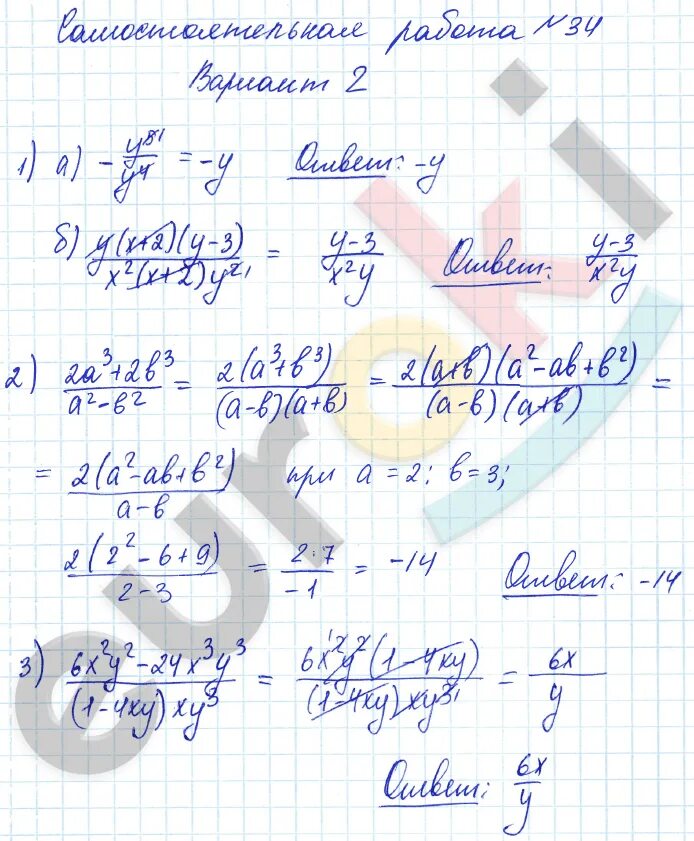 Самостоятельная работа №34
Вариант 2
1) а) - y⁵/y⁴ = -y Ответ: -y
б) y(x+2)(y-3)/x²(x+2)y² = y-3/x²y Ответ: y-3/x²y
2) 2a³+2b³/a²-b² = 2(a³+b³)/(a-b)(a+b) = 2(a+b)(a²-ab+b²)/(a-b)(a+b) =
= 2(a²-ab+b²)/a-b при a=2; b=3;
2(2²-6+9)/2-3 = 2·7/-1 = -14 Ответ: -14
3) 6x²y²-24x³y³/(1-4xy)xy³ = 6x²y²(1-4xy)/(1-4xy)xy³ = 6x/y
Ответ: 6x/y
euroki